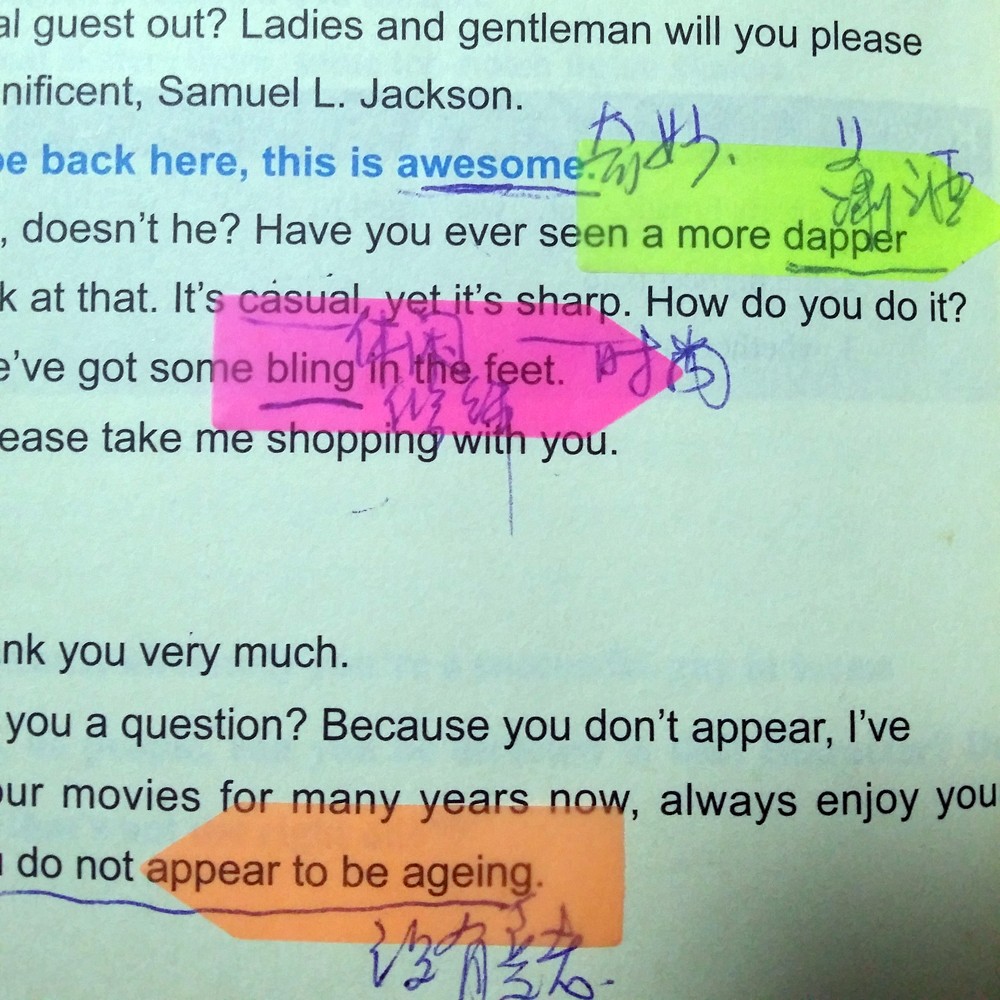 al guest out? Ladies and gentleman will you please
nificent, Samuel L. Jackson.
be back here, this is awesome.
, doesn't he? Have you ever seen a more dapper
k at that. It's casual, yet it's sharp. How do you do it?
休闲
时尚
e've got some bling in the feet.
ease take me shopping with you.
nk you very much.
you a question? Because you don't appear, I've
our movies for many years now, always enjoy you
do not appear to be ageing.
没有变老.